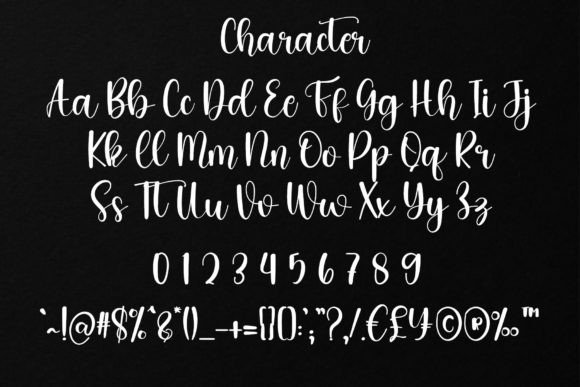 Character
Aa Bb Cc Dd Ee Ff Gg Hh Ii Jj
Kk Ll Mm Nn Oo Pp Qq Rr
Ss Tt Uu Vv Ww Xx Yy Zz
0 1 2 3 4 5 6 7 8 9
`~!@#$%^&*()_-+={}[]:;'"?,/.€£¥©℗‰™